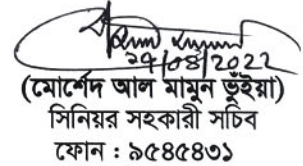 ২৭/০৪/২০২২
(মোর্শেদ আল মামুন ভুঁইয়া)
সিনিয়র সহকারী সচিব
ফোন : ৯৫৪৫৪৩১